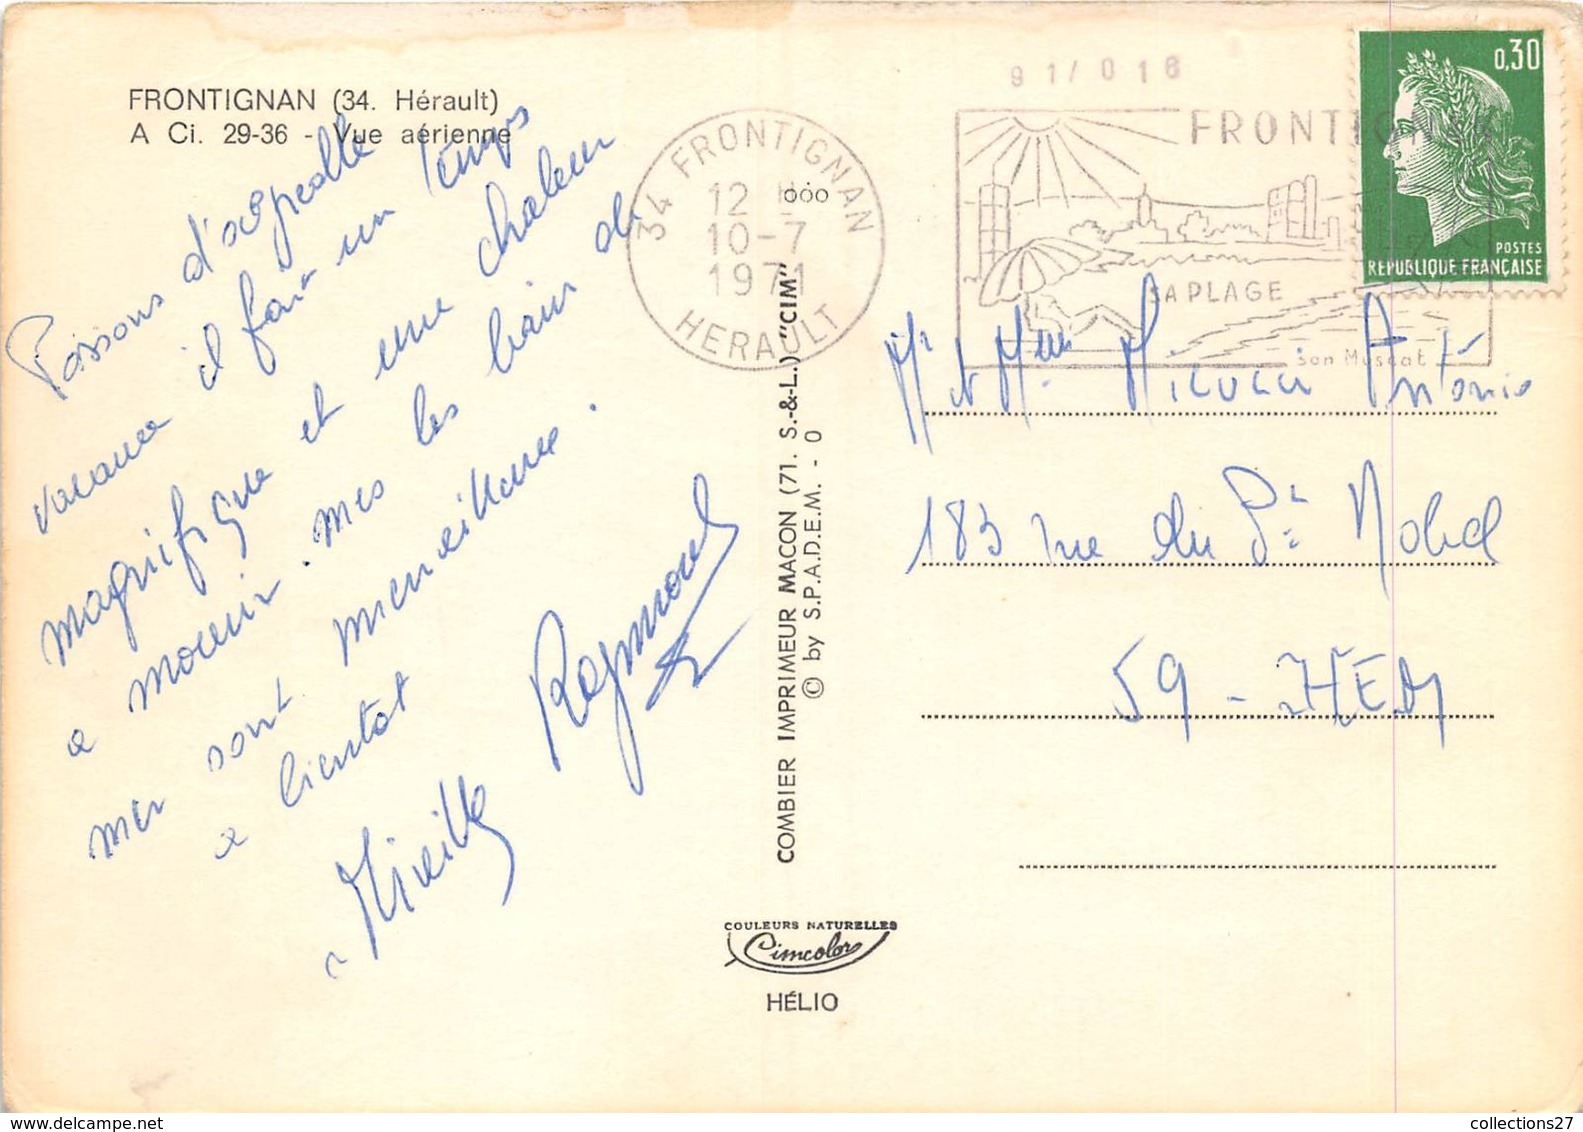 FRONTIGNAN (34. Hérault)
A Ci. 29-36 - Vue aérienne
Passons d'agreable
vacance il fait un temps
magnifique et une chaleur
a mourir. mes les bain de
mer sont merveilleuse.
a bientot
Raymond
Mireille
COMBIER IMPRIMEUR MACON (71. S.-&-L.) "CIM"
© by S.P.A.D.E.M. - 0
COULEURS NATURELLES
Cimcolor
HÉLIO
91/016
34 FRONTIGNAN
12 H
10-7
1971
HERAULT
FRONTIGNAN
SA PLAGE
Son Muscat
0,30
POSTES
REPUBLIQUE FRANÇAISE
Mr et Mme Micucci Antonio
183 rue du Pt
59 - HEM
collections27